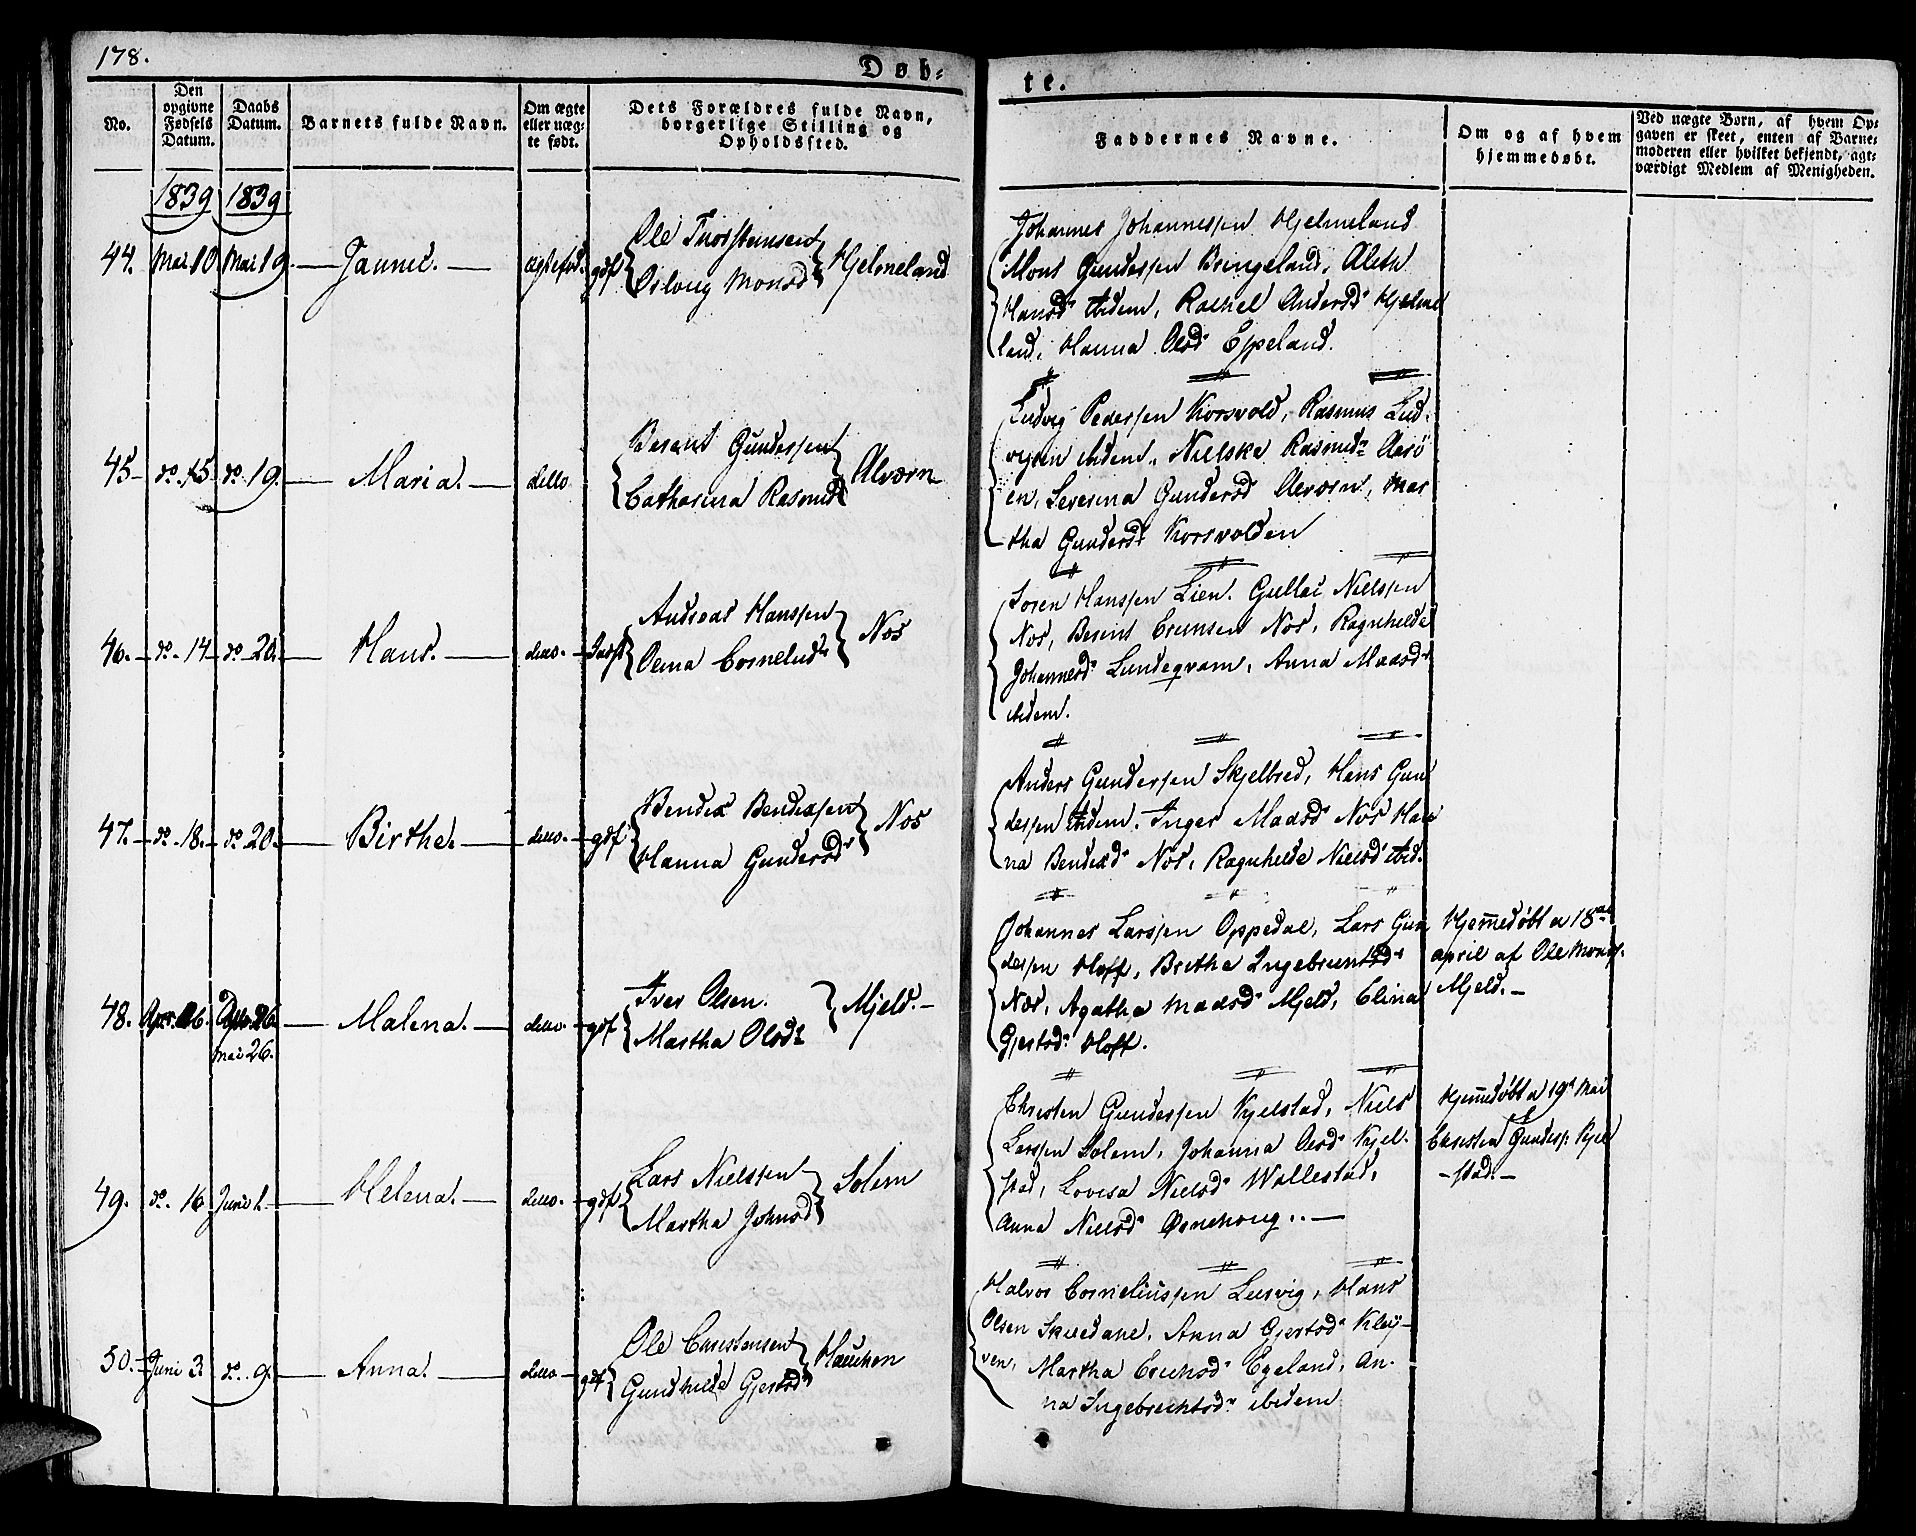 178.
Døb-
te.
No.
Den opgivne Fødsels Datum.
Daabs Datum.
Barnets fulde Navn.
Om ægte eller uægte født.
Dets Forældres fulde Navn, borgerlige Stilling og Opholdssted.
Faddernes Navne.
Om og af hvem hjemmedøbt.
Ved uægte Børn, af hvem Opgaven er skeet, enten af Barnemoderen eller hvilket bekjendt, agtværdigt Medlem af Menigheden.
1839 1839
44. Mai 10 Mai 19. Jannic. ægtefød. gdf
Ole Thorsteinsen
Osloug Monsd
Hjelmeland
Johannes Johannessen Hjelmeland
Mons Gundersen Bringeland, Aleth
Hansd ibidem, Rachel Andersd Hjelme
land, Hanna Olsd Eppeland.
45 do. 15 do. 19. Maria. detto
Berent Gundersen
Catharina Rasmusd
Alværn
Ludvig Pedersen Korsvold, Rasmus Lud.
vigsen ibidem, Nielska Rasmusd Aarö
en, Severina Gundersd Alværn, Mar
tha Gundersd Korsvolden
46. do. 14 do. 20. Hans. detto. Indst
Andreas Hanssen
Olina Cornelusd
Nos
Soren Hanssen Lien. Gullei Nielssen
Nos, Berint Erumsen Nos, Ragnhilde
Johannesd Lundeqvam, Anna Madsd
ibidem.
47. do. 18. do. 20. Birthe. detto. gdf
Bendix Bendixsen
Hanna Gundersd
Nos
Anders Gundersen Skjelbred, Hans Gun
dersen ibidem. Inger Madsd Nos Han
na Bendixd Nos, Ragnhilde Nielsd ibid.
48. Apr. 16. Mai 26. Malena. detto. gdf
Iver Olsen.
Martha Olsd
Mjeld.
Johannes Larssen Oppedal, Lars Gun
dersen Hoff, Britha Ingebrectsd
Nos, Agatha Madsd Mjeld, Elina
Gjertsd Hoff.
Hjemmedöbt a 18de
april af Ole Monss.
Mjeld.
49. do. 16 Juni 1. Helena. detto. gdf
Lars Nielssen
Martha Johnsd
Solem
Christen Gundersen Kjelstad, Niels
Larssen Solem, Johanna Olsd Kjel.
stad, Lovisa Nielsd Wallestad,
Anna Nielsd Ørnehoug..
Hjemmedöbt a 19d Mai
Christen Gunderss. Kjel
stad.
50. Juni 3. do. 9. Anna. detto gdf
Ole Christensen
Gundhilde Gjertsd
Hauchen
Halvor Corneliussen Lusvig, Hans
Olsen Skiledahl, Anna Gjertsd Klöy
ven, Martha Erichsd Egeland, An.
na Ingebrechtsd ibidem